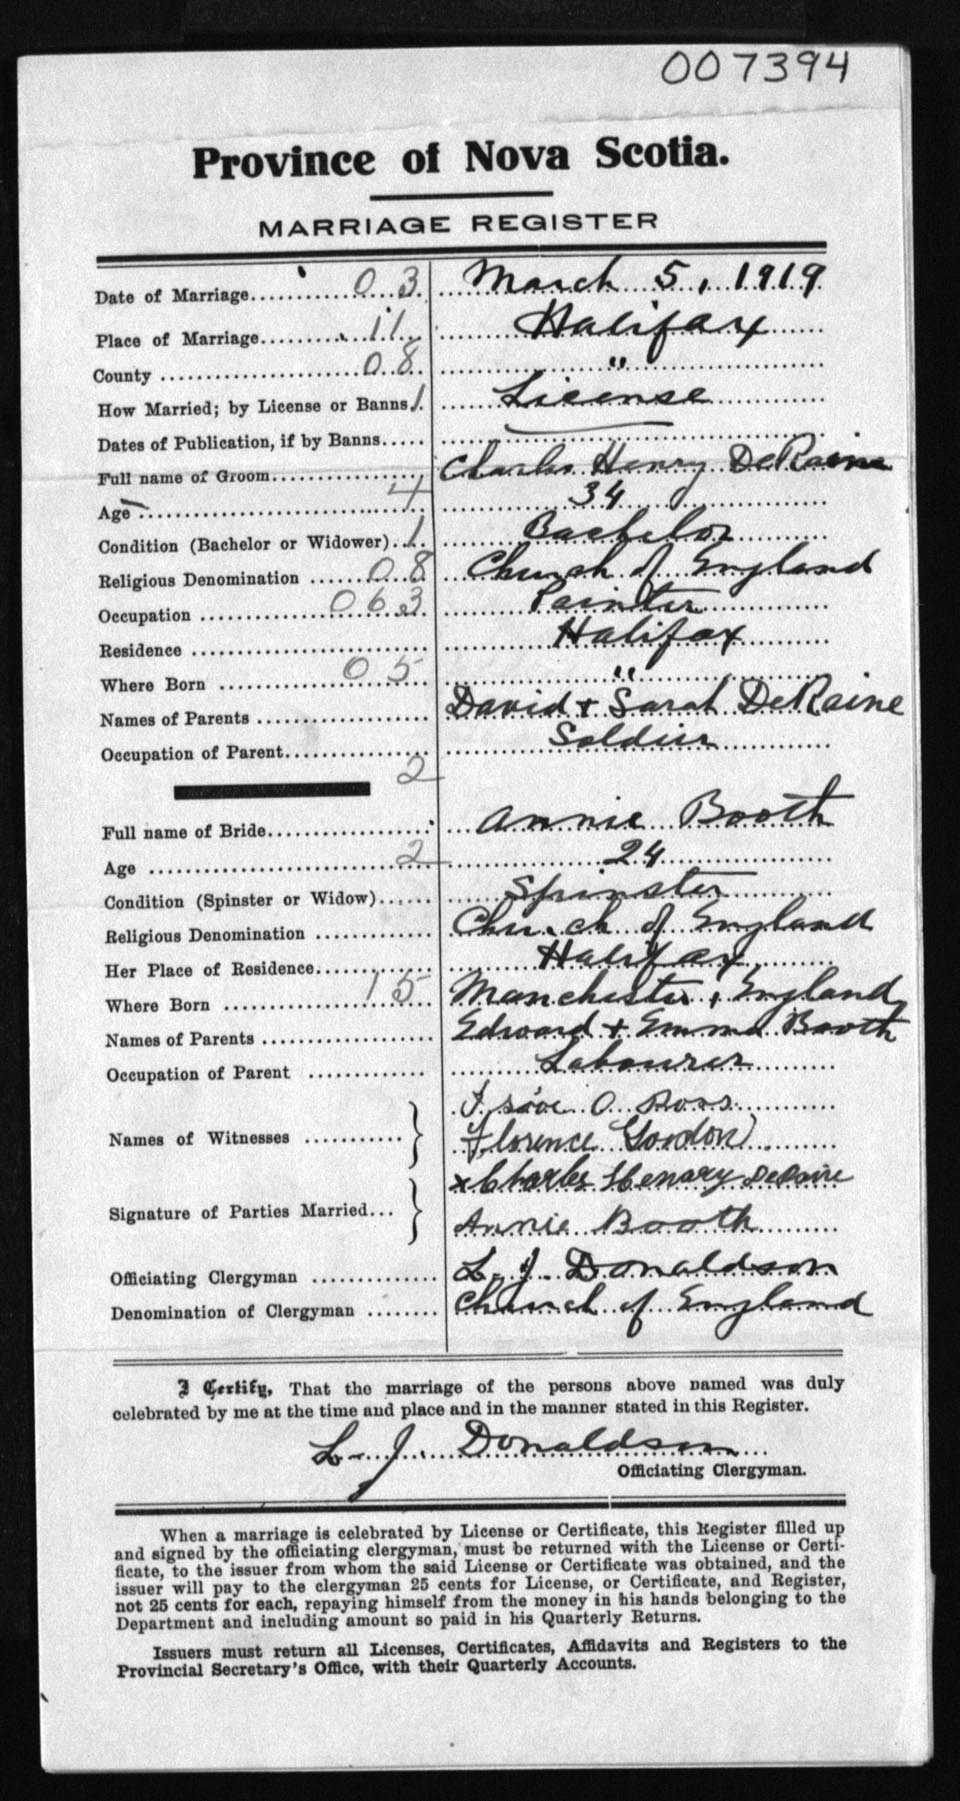 007394
Province of Nova Scotia.
MARRIAGE REGISTER
Date of Marriage 03 March 5, 1919
Place of Marriage 11 Halifax
County 08 "
How Married; by License or Banns 1 License
Dates of Publication, if by Banns
Full name of Groom Charles Henry DeRaine
Age 4 34
Condition (Bachelor or Widower) 1 Bachelor
Religious Denomination 08 Church of England
Occupation 063 Painter
Residence Halifax
Where Born 05 "
Names of Parents David + Sarah DeRaine
Occupation of Parent Soldier
2
Full name of Bride Annie Booth
Age 2 24
Condition (Spinster or Widow) Spinster
Religious Denomination Church of England
Her Place of Residence Halifax
Where Born 15 Manchester, England
Names of Parents Edward + Emma Booth
Occupation of Parent Labourer
O Ross
Names of Witnesses Florence Gordon
x Charles Henary DeRaine
Signature of Parties Married Annie Booth
Officiating Clergyman L. J. Donaldson
Denomination of Clergyman Church of England
I Certify, That the marriage of the persons above named was duly
celebrated by me at the time and place and in the manner stated in this Register.
L. J. Donaldson
Officiating Clergyman.
When a marriage is celebrated by License or Certificate, this Register filled up
and signed by the officiating clergyman, must be returned with the License or Certi-
ficate, to the issuer from whom the said License or Certificate was obtained, and the
issuer will pay to the clergyman 25 cents for License, or Certificate, and Register,
not 25 cents for each, repaying himself from the money in his hands belonging to the
Department and including amount so paid in his Quarterly Returns.
Issuers must return all Licenses, Certificates, Affidavits and Registers to the
Provincial Secretary's Office, with their Quarterly Accounts.